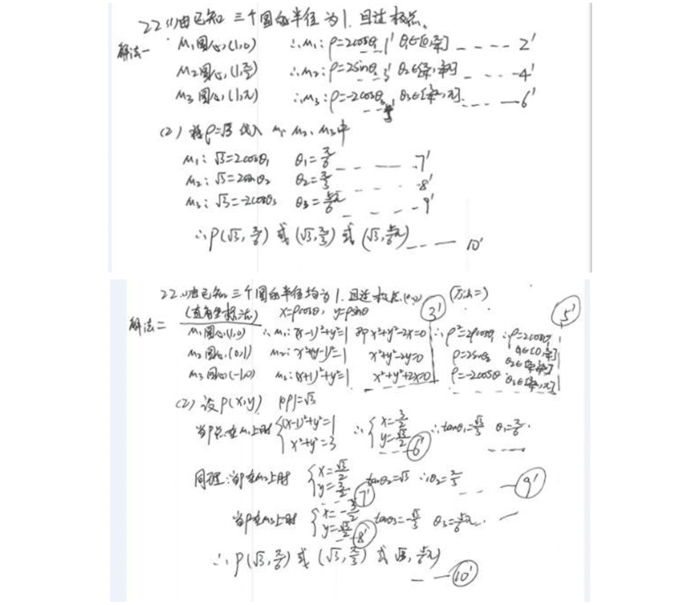 22.(1)由已知 三个圆的半径为1.且过极点.
解法一 M₁圆心(1,0) ∴M₁:ρ=2cosθ₁ θ₁∈[0,π/4] ---- 2'
M₂圆心(1,π/2) ∴M₂:ρ=2sinθ₂ θ₂∈[π/4,3π/4] ---- 4'
M₃圆心(1,π) ∴M₃:ρ=-2cosθ₃ θ₃∈[3π/4,π] ---- 6'
(2) 将ρ=√3代入 M₁ M₂、M₃中
M₁:√3=2cosθ₁ θ₁=π/6 ---- 7'
M₂:√3=2sinθ₂ θ₂=π/3 ---- 8'
M₃:√3=-2cosθ₃ θ₃=5π/6 ---- 9'
∴P(√3,π/6)或(√3,π/3)或(√3,5π/6) ---- 10'
22.(1)由已知 三个圆的半径均为1.且过极点(0,0) (方法二)
(直角坐标法) x=ρcosθ, y=ρsinθ ③' ⑤'
解法二 M₁圆心(1,0) ∴M₁:(x-1)²+y²=1 即x²+y²-2x=0 ∴ρ²=2ρcosθ ∴ρ=2cosθ₁ θ₁∈[0,π/4]
M₂圆心(0,1) M₂:x²+(y-1)²=1 x²+y²-2y=0 ρ=2sinθ₂ θ₂∈[π/4,3π/4]
M₃圆心(-1,0) M₃:(x+1)²+y²=1 x²+y²+2x=0 ρ=-2cosθ θ₃∈[3π/4,π]
(2) 设P(x,y) |OP|=√3
当P点在M₁上时 {(x-1)²+y²=1 x²+y²=3 ∴{x=3/2 y=√3/2 ⑥' ∴tanθ₁=√3/3 θ₁=π/6.
同理:当P在M₂上时 {x=√3/2 y=3/2 ⑦' tanθ₂=√3 ∴θ₂=π/3 ⑨'
当P在M₃上时 {x=-3/2 y=√3/2 ⑧' tanθ₃=-√3/3 θ₃=5π/6.
∴P(√3,π/6)或(√3,π/3)或(√3,5π/6) --⑩'